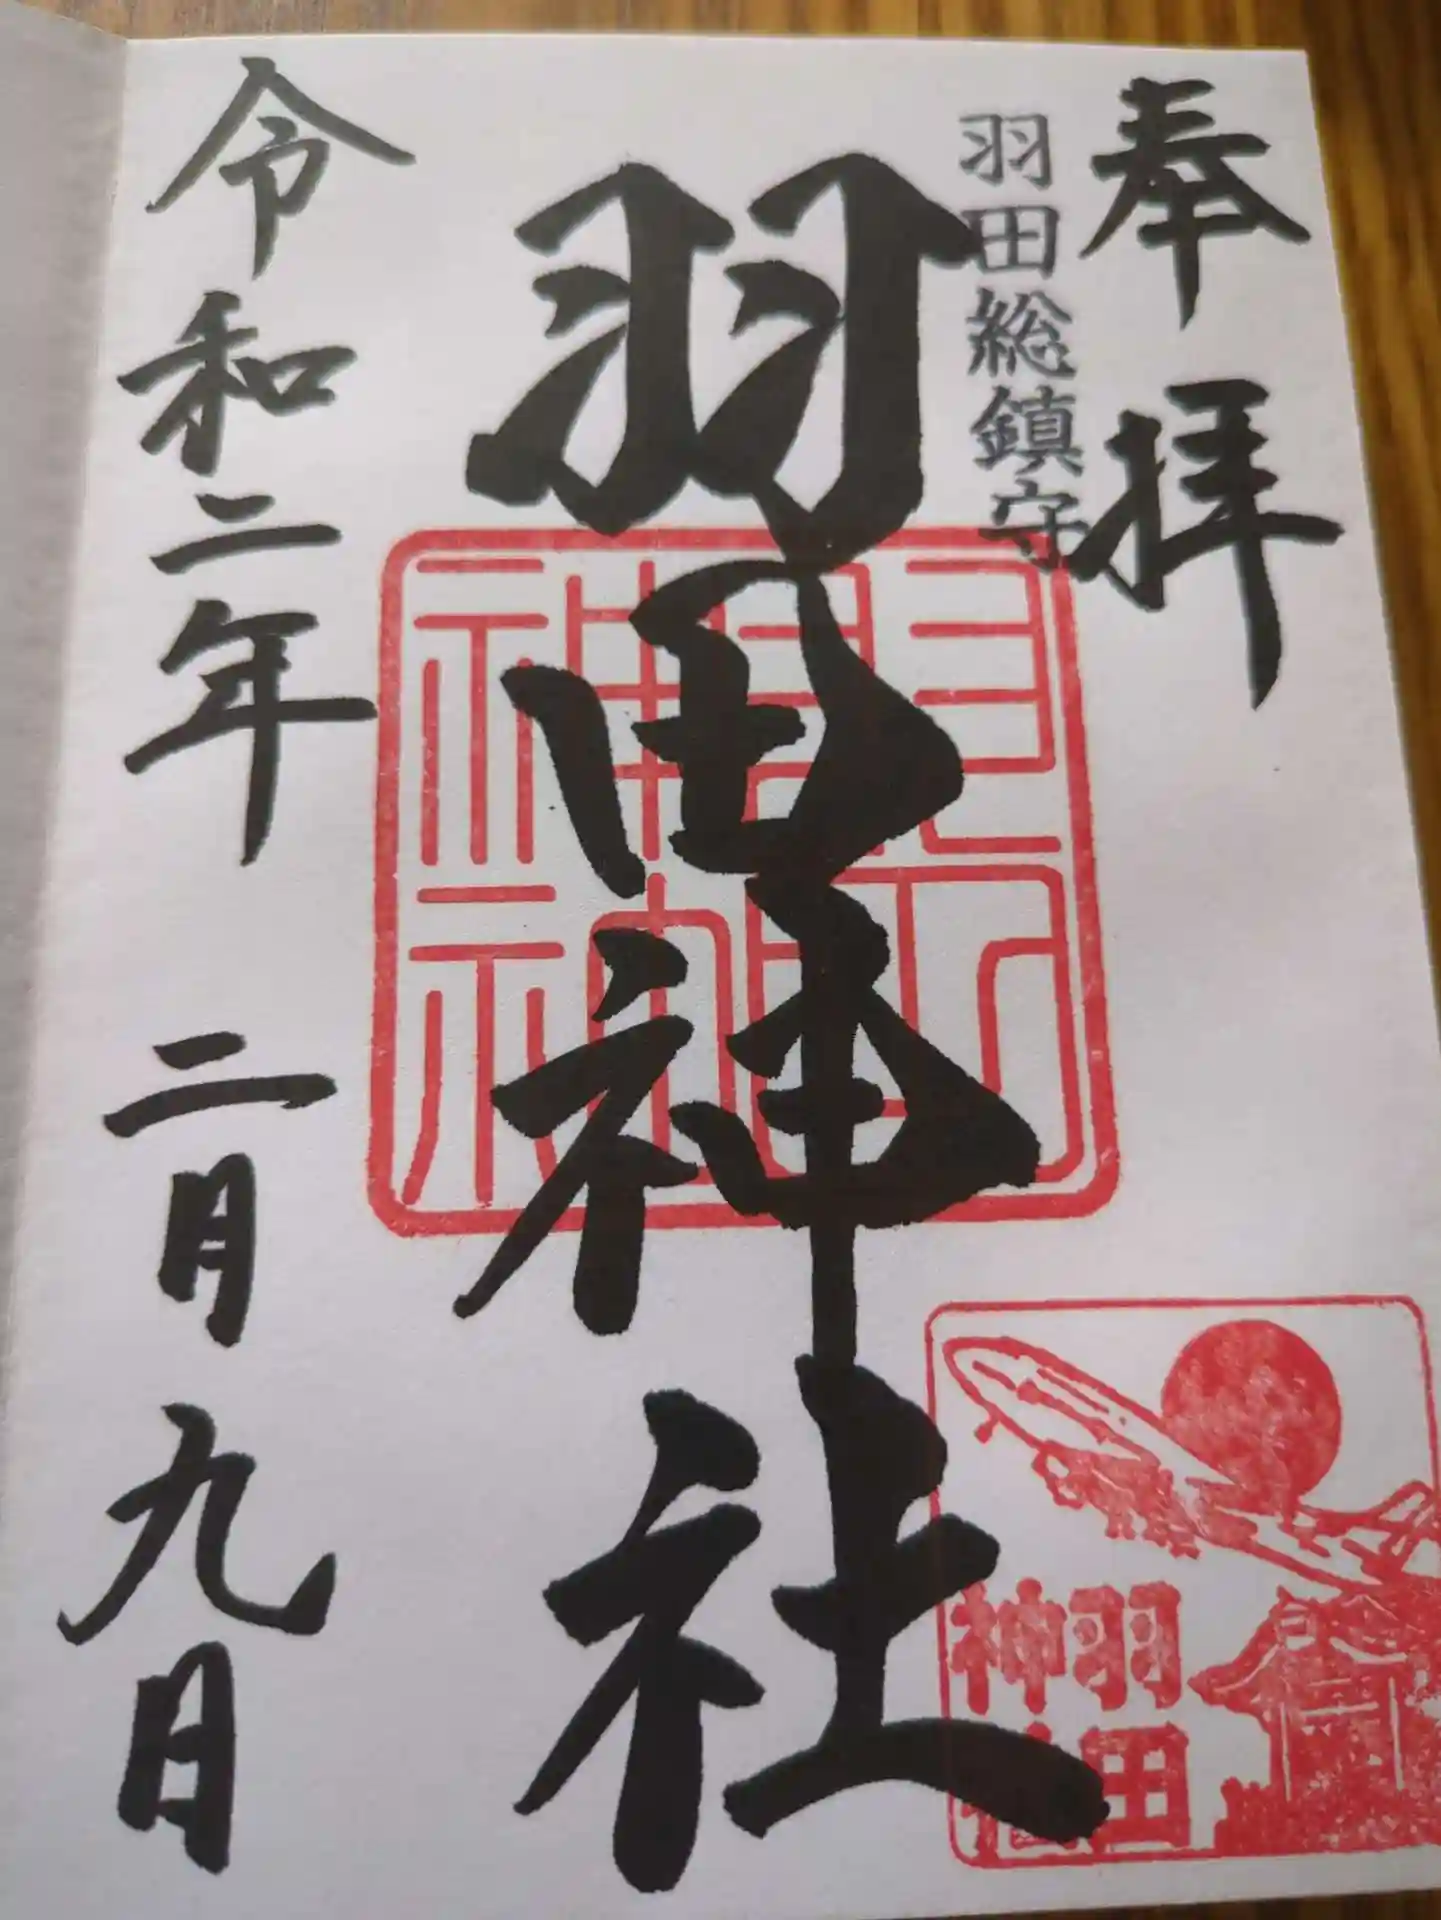 奉拝
羽田総鎮守
羽田神社
令和二年 二月九日
羽田
神社